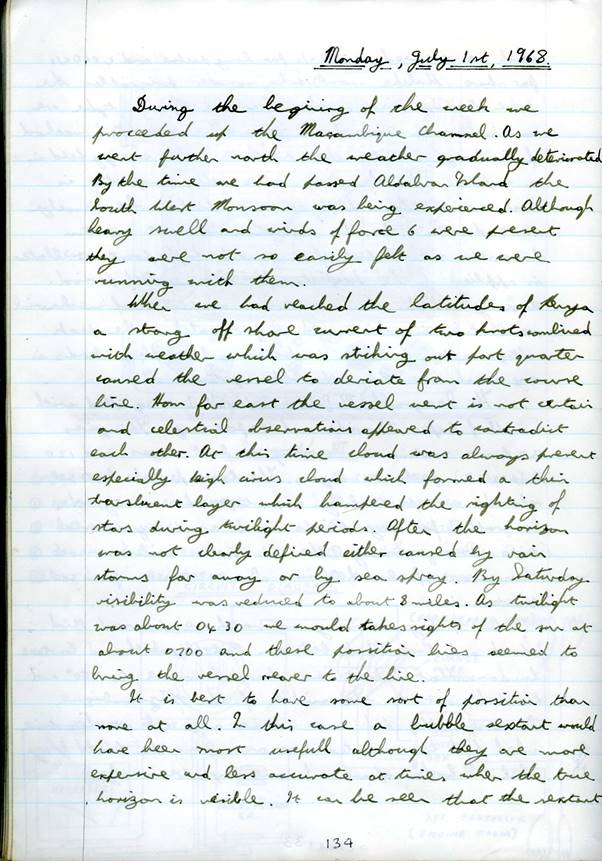 Monday, July 1st, 1968.
During the begining of the week we
proceeded up the Mozambique Channel. As we
went further north the weather gradually deteriorated
By the time we had passed Aldabran Island the
South West Monsoon was being experienced. Although
heavy swell and winds of force 6 were present
they were not so easily felt as we were
running with them.
When we had reached the latitudes of Kenya
a strong off shore current of two knots combined
with weather which was striking out port quarter
caused the vessel to deviate from the course
line. How far east the vessel went is not certain
and celestial observations appeared to contradict
each other. At this time cloud was always present
especially high cirrus cloud which formed a thin
translucent layer which hampered the sighting of
stars during twilight periods. Often the horizon
was not clearly defined either caused by rain
storms far away or by sea spray. By Saturday
visibility was reduced to about 8 miles. As twilight
was about 0430 we would take sights of the sun at
about 0700 and these possition lines seemed to
bring the vessel nearer to the line.
It is best to have some sort of possition than
none at all. In this case a bubble sextant would
have been most usefull although they are more
expensive and less accurate at times when the true
horizon is visible. It can be seen that the sextant
134